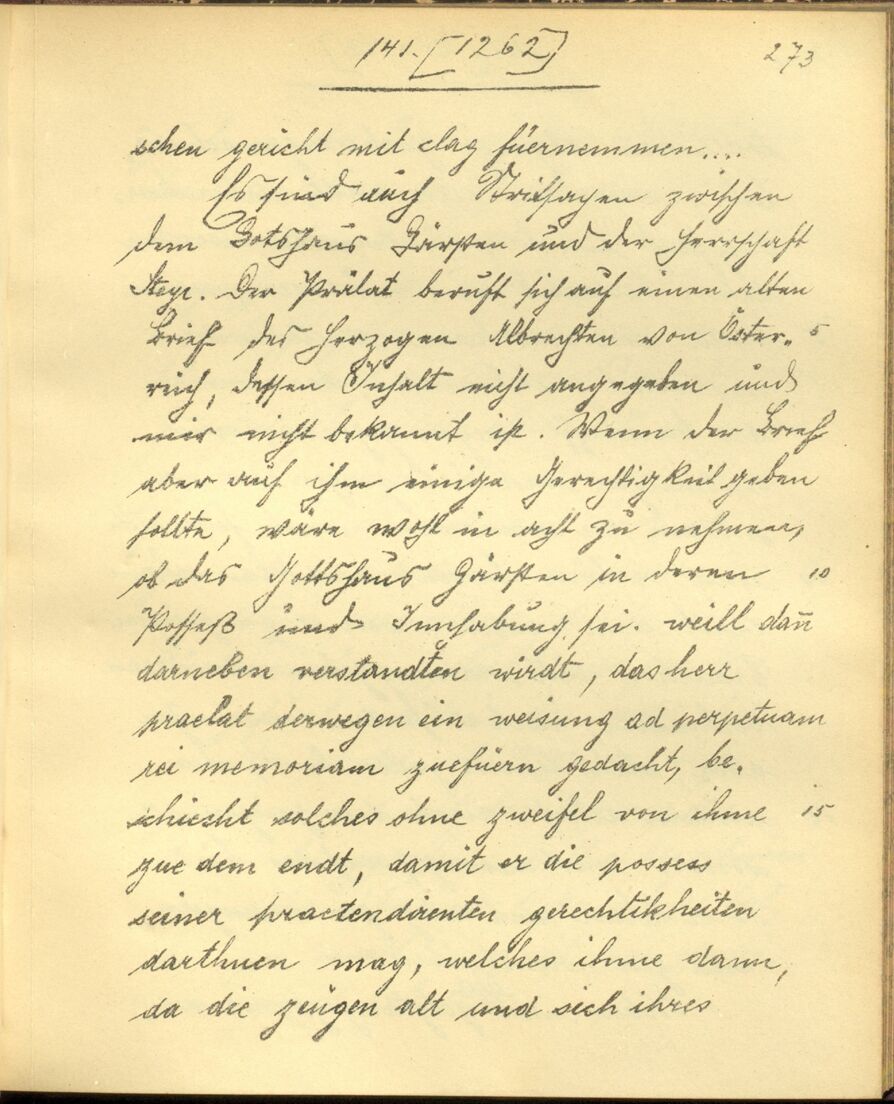 141. [1262]
273
schen gericht mit clag füernemmen....
Es sind auch Stritsachen zwischen
dem Gotshaus Gärsten und der Herrschaft
Steyr. Der Prälat beruft sich auf einen alten
Brief des Herzogen Albrechten von Öster- 5
reich, dessen Inhalt nicht angegeben und
mir nicht bekannt ist. Wenn der Brief
aber auf ihm einige Gerechtigkeit geben
sollte, wäre wohl in acht zu nehmen,
ob das Gottshaus Gärsten in deren 10
Possess und Innhabung sei. weill dan̄
darneben verstandten wirdt, das herr
praelat derwegen ein weisung ad perpetuam
rei memoriam zuefüern gedacht, be-
schiecht solches ohne zweifel von ihme 15
zue dem endt, damit er die possess
seiner praetendirenten gerechtikheiten
darthuen mag, welches ihme dann,
da die zeugen alt und sich ihres